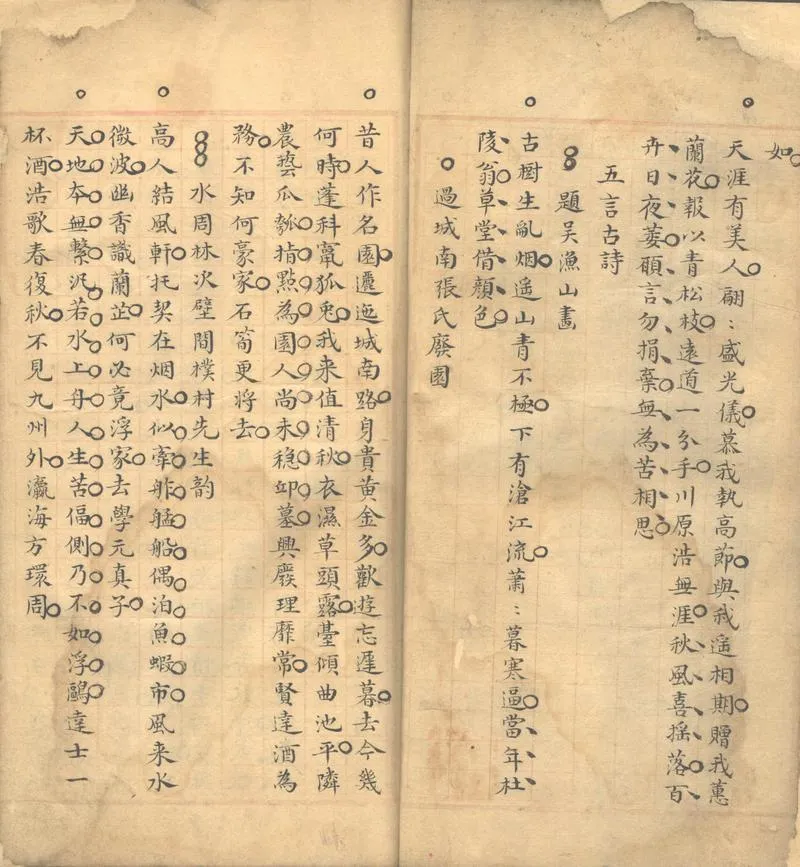 如
天涯有美人翩〻盛光儀慕我執高節與我遥相期贈我蕙
蘭花報以青松枝遠道一分手川原浩無涯秋風喜搖落百
卉日夜萎願言勿捐棄無為苦相思
五言古詩
題吴漁山畫
古樹生亂烟遥山青不極下有滄江流蕭〻暮寒逼當年杜
陵翁草堂借顔色
過城南張氏廢園
昔人作名園邐迤城南路身貴黄金多歡遊忘遲暮去今幾
何時蓬科竄狐兔我来值清秋衣濕草頭露臺傾曲池平隣
農蓺瓜瓠指點為園人尚未穏邱墓興廢理靡常賢達酒為
務不知何豪家石笥更将去
水周林次壁間樸村先生韵
高人結風軒托契在烟水似牽舴艋船偶泊魚蝦市風来水
微波幽香識蘭芷何必竟浮家去學元真子
天地本無繫汎若水上舟人生苦偪側乃不如浮鷗達士一
杯酒浩歌春復秋不見九州外瀛海方環周